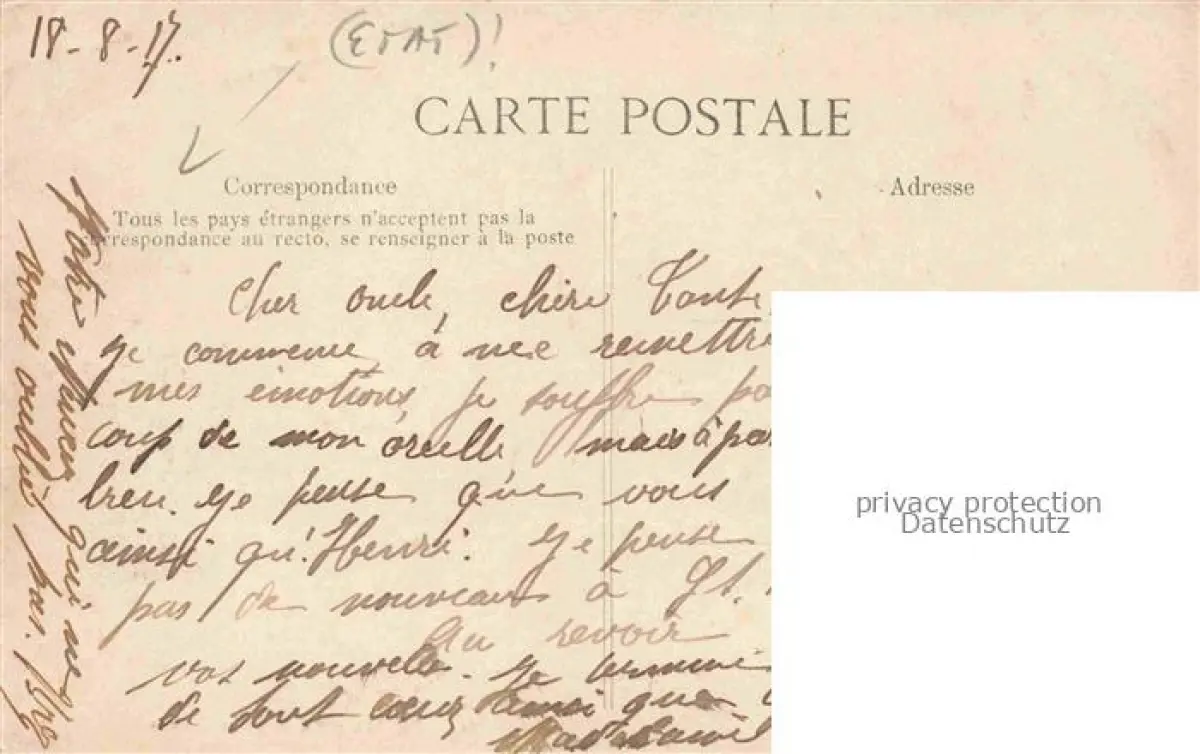 18-8-17.
(ETAT)!
CARTE POSTALE
Correspondance
Tous les pays étrangers n'acceptent pas la
correspondance au recto, se renseigner à la poste
Adresse
Cher oncle, chère Tante
Je commence à me remettre
mes émotions, je souffre
coup de mon oreille mais à par
bien. Je pense que vous
ainsi qu'Henri. Je pense
pas de nouveau à St.
Au revoir
vos nouvelles. Je termine
de tout cœur ainsi que
Votre nièce qui ne
vous oublie pas.
privacy protection
Datenschutz